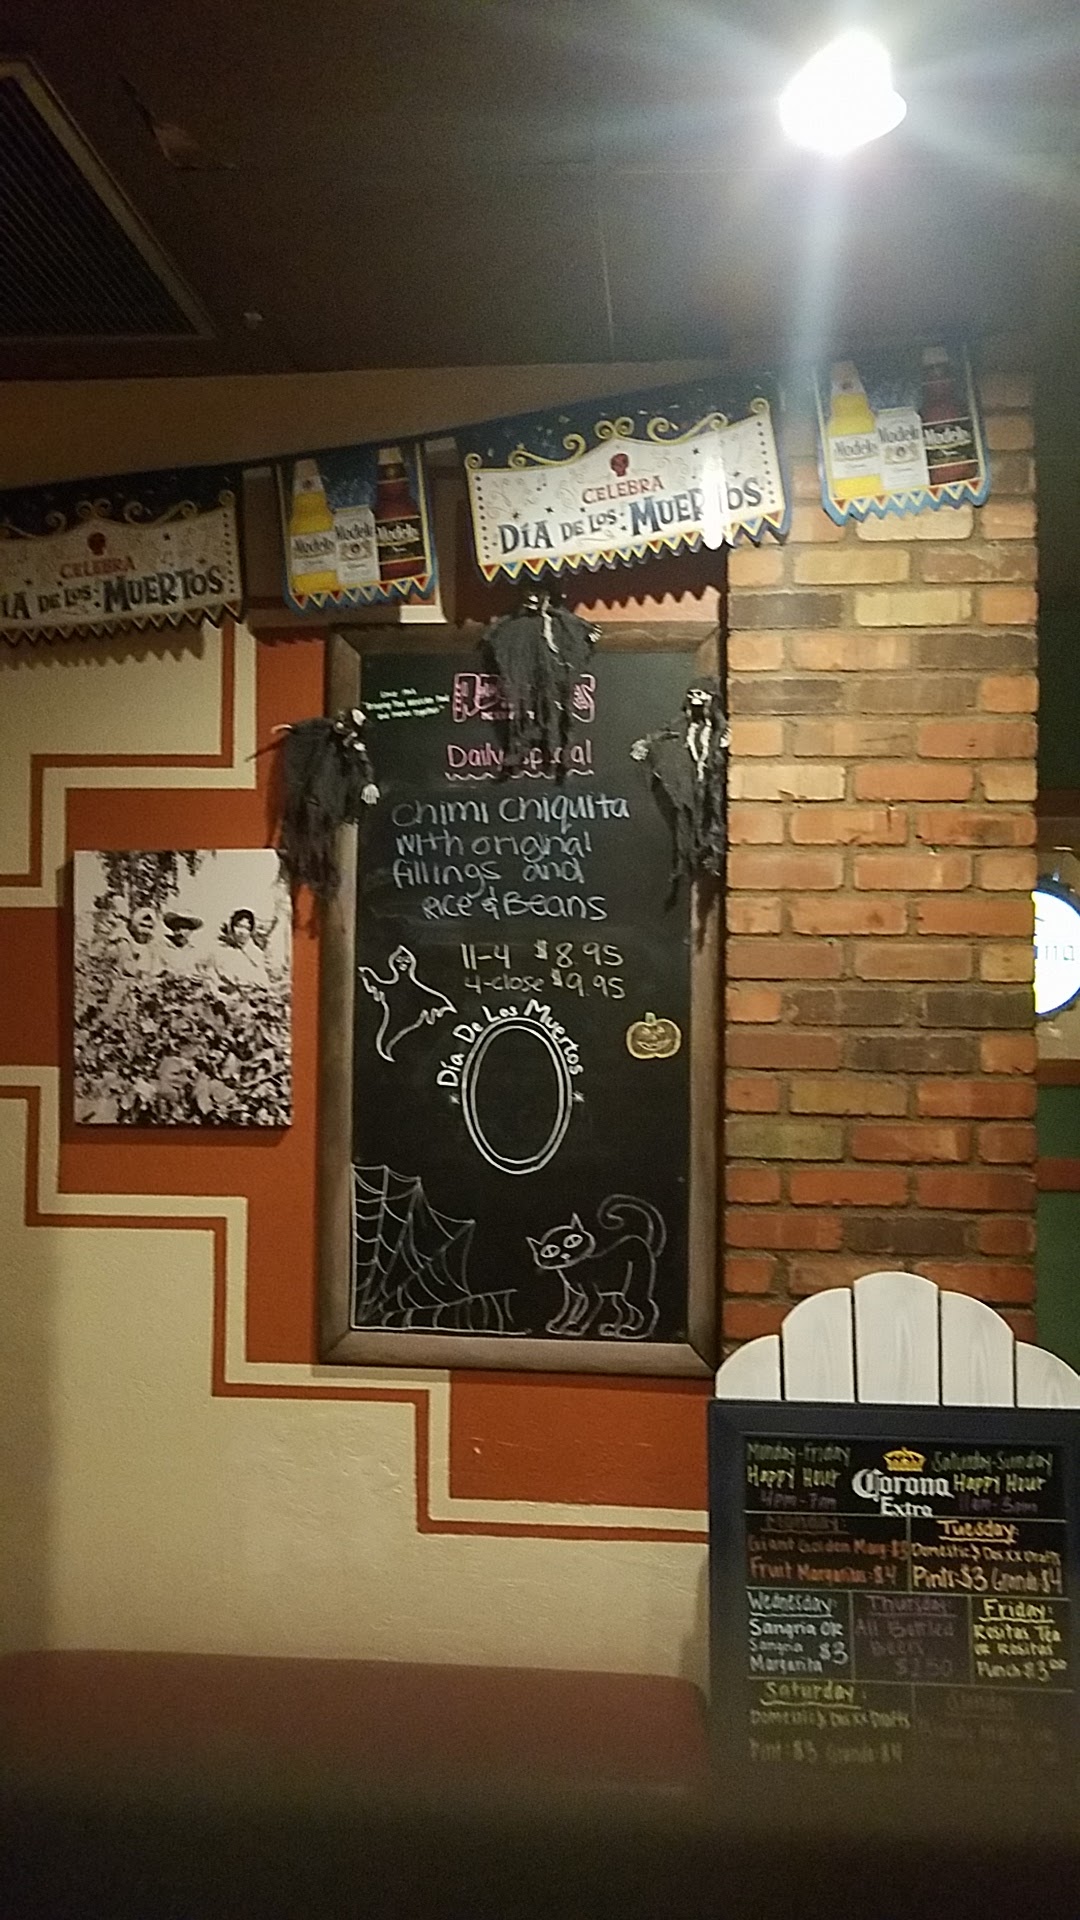 CELEBRA
DÍA DE LOS: MUERTOS
Modelo
Modelo
Modelo
CELEBRA
DÍA DE LOS: MUERTOS
Modelo
Modelo
Modelo
Daily Special
Chimi Chiquita
with original
fillings and
Rice & Beans
11-4 $8.95
4-close $9.95
Día De Los Muertos
Monday-Friday
Happy Hour
4pm-7pm
Corona
Extra
Saturday-Sunday
Happy Hour
Monday:
Giant Golden Marg $5
Fruit Margaritas $4
Tuesday:
Domestic & Dos xx Drafts
Pints $3 Grande $4
Wednesday:
Sangria OR
Sangria $3
Margarita
Thursday:
All Bottled
Beers
$2.50
Friday:
Rositas Tea
OR Rositas
Punch $3.00
Saturday:
Domestic & Dos xx Drafts
Pint $3 Grande $4
Sunday